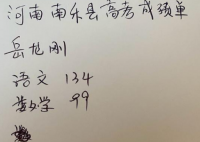 河南南乐县高考成绩单
岳龙刚
语文 134
数学 99